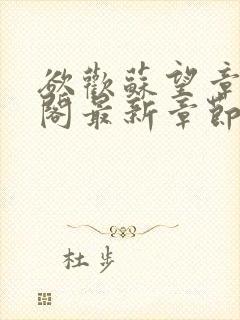 欲歡蘇望章
閣最新章節
杜步